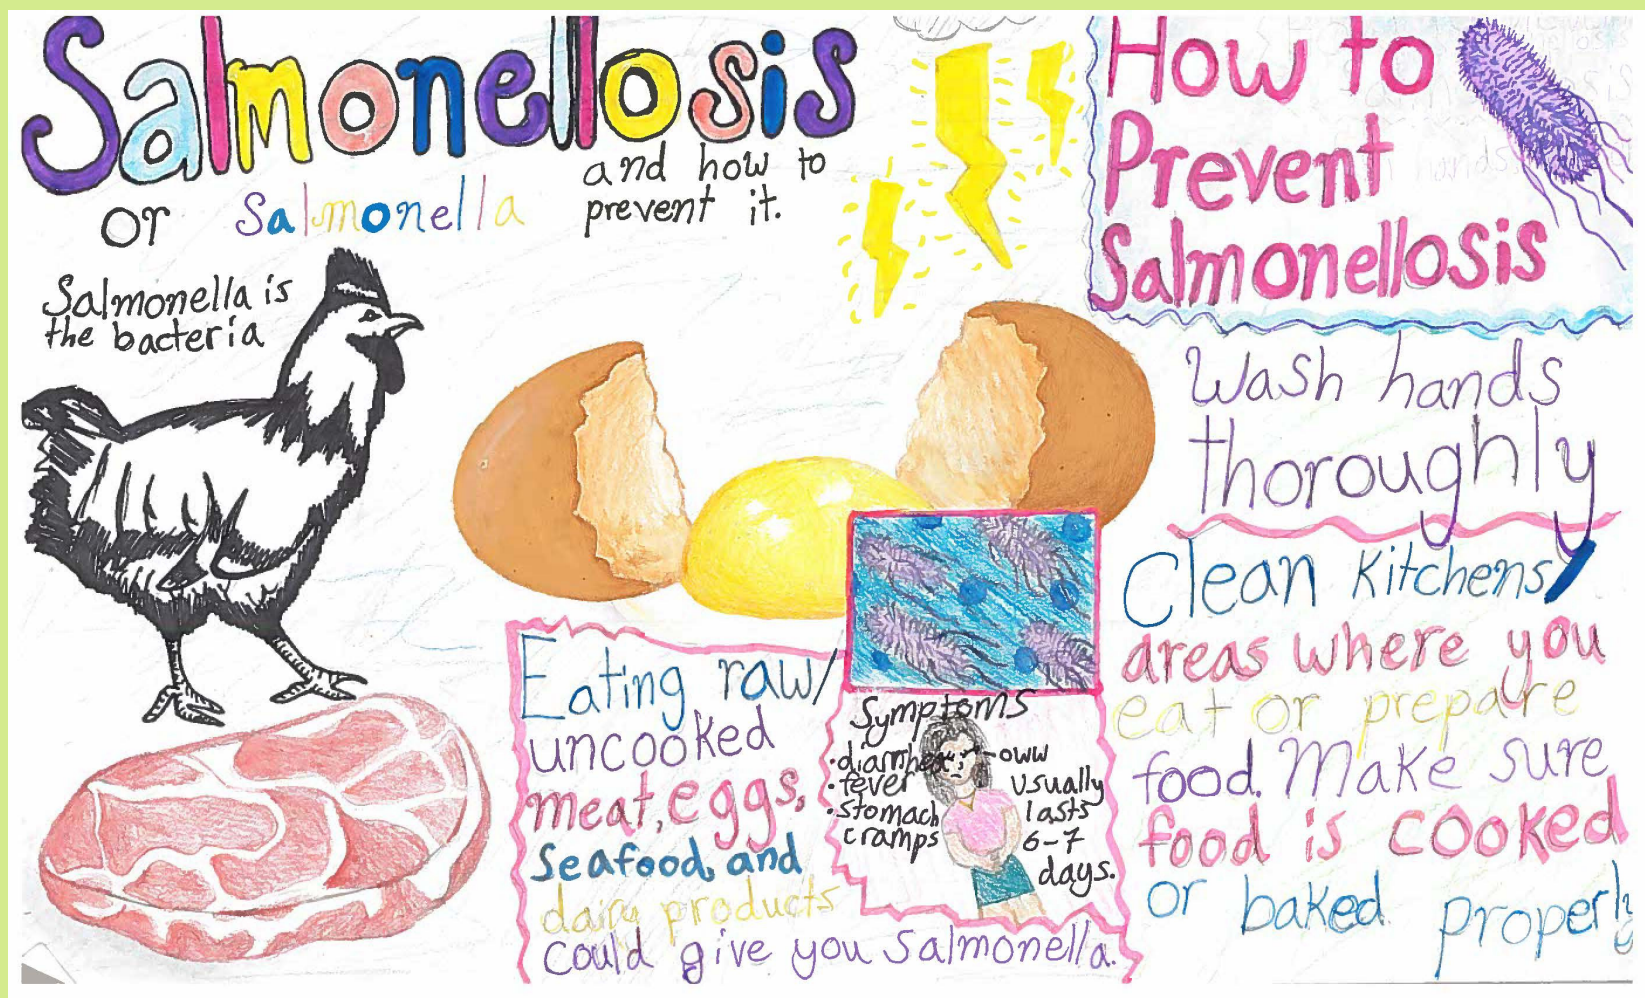 Salmonellosis
or Salmonella
and how to
prevent it.
Salmonella is
the bacteria
Eating raw/
uncooked
meat, eggs,
seafood, and
dairy products
could give you Salmonella.
Symptoms
• diarrhea
• fever
• stomach
cramps
oww
Usually
lasts
6-7
days.
How to
Prevent
Salmonellosis
Wash hands
thoroughly
Clean Kitchens/
areas where you
eat or prepare
food. Make sure
food is cooked
or baked properly